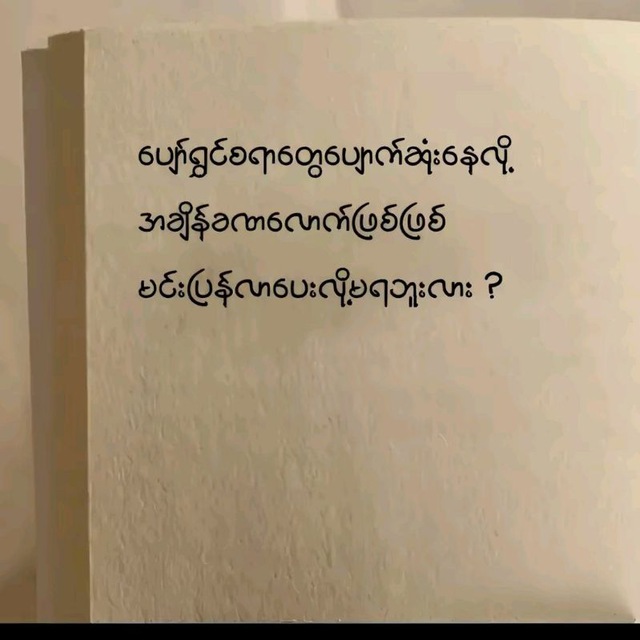 ပျော်ရွှင်စရာတွေပျောက်ဆုံးနေလို့
အချိန်ခဏလောက်ဖြစ်ဖြစ်
မင်းပြန်လာပေးလို့မရဘူးလား ?